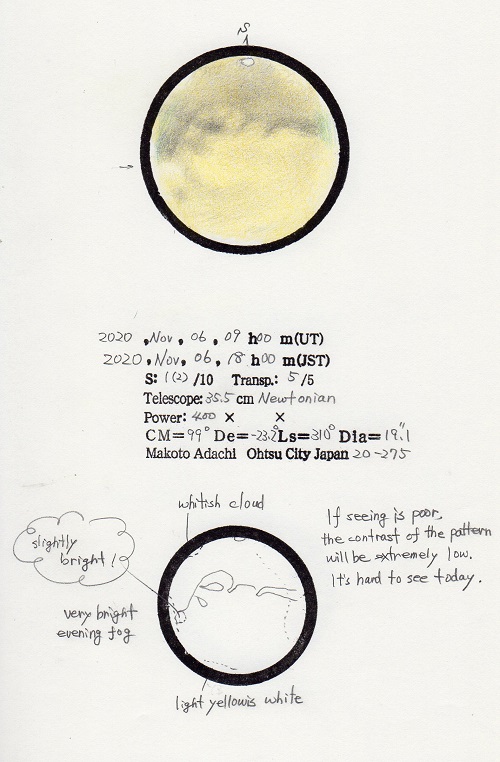 S
2020 , Nov, 06, 09 h00 m(UT)
2020 , Nov, 06, 18 h00 m(JST)
S: 1(2) /10 Transp.: 5 /5
Telescope: 35.5 cm Newtonian
Power: 400 × ×
CM= 99° De= -23.2° Ls= 310° Dia= 19.″1
Makoto Adachi Ohtsu City Japan 20-275
whitish cloud
slightly
bright!
very bright
evening fog
If seeing is poor,
the contrast of the pattern
will be extremely low.
It's hard to see today.
light yellowis white